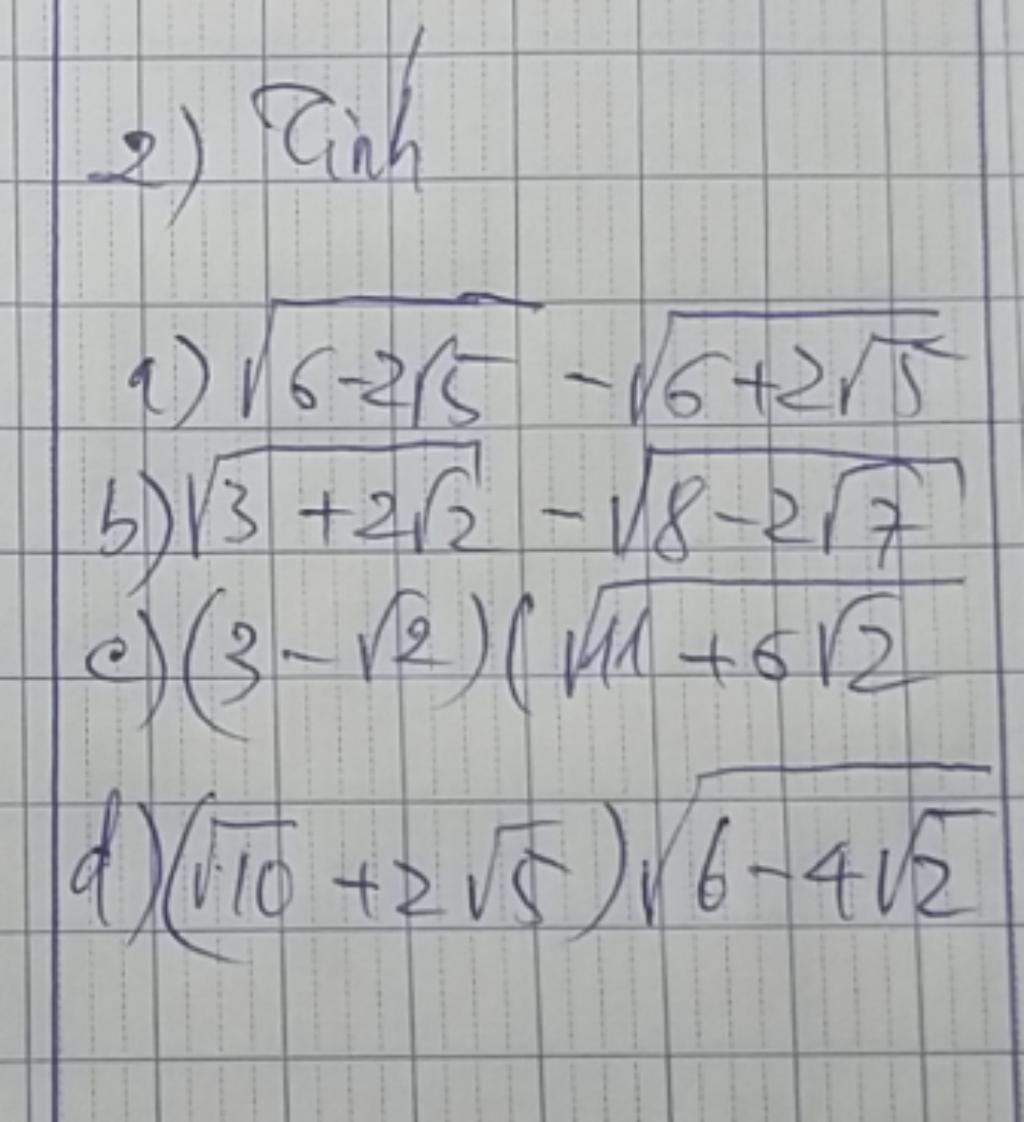 2) Tính
a) √(6-2√5) - √(6+2√5)
b) √(3 +2√2) - √(8-2√7)
c) (3-√2)(√(11 +6√2)
d) (√10 +2√5)√(6-4√2)